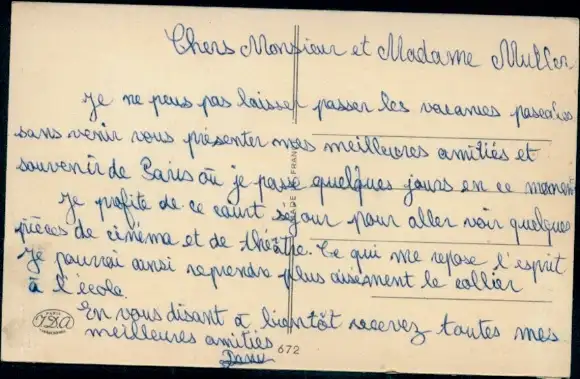 Chers Monsieur et Madame Muller
Je ne peus pas laisser passer les vacances pascales
sans venir vous présenter mes meilleures amitiés et
souvenir de Paris où je passe quelques jours en ce moment
Je profite de ce court séjour pour aller voir quelques
pièces de cinéma et de théâtre. Ce qui me repose l'esprit
Je pourrai ainsi reprendre plus aisément le collier
à l'école.
En vous disant à bientôt recevez toutes mes
meilleures amitiés
672